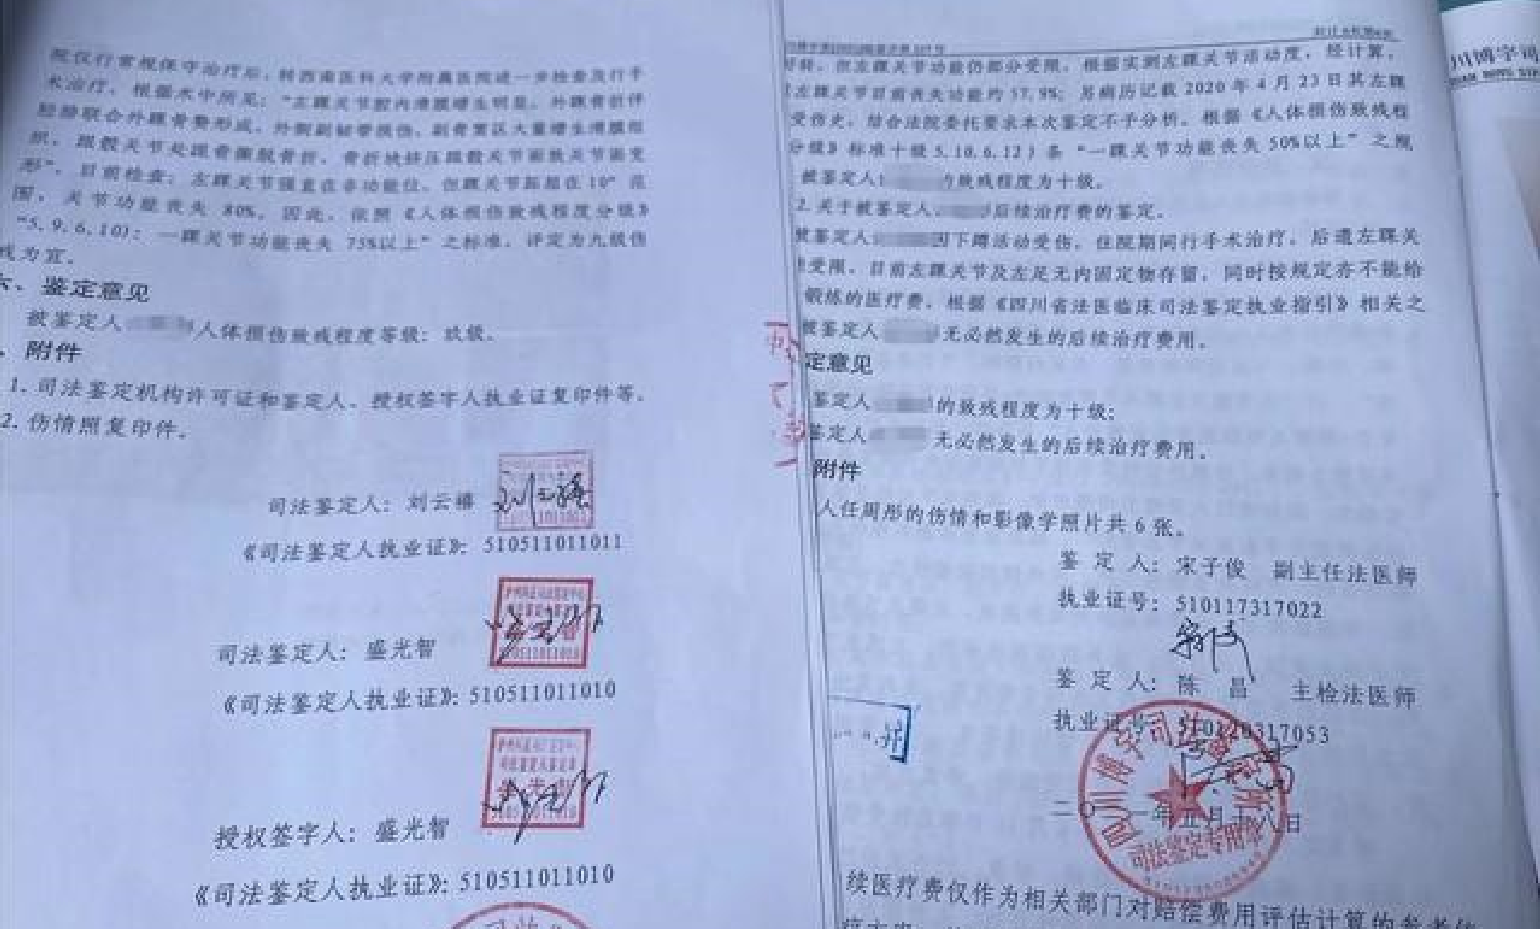 院仅行常规保守治疗后，转西南医科大学附属医院进一步检查及行手
术治疗。根据术中所见：“左踝关节腔内滑膜增生明显，外踝骨折伴
形”。目前检查：左踝关节强直在非功能位，但踝关节跖屈在10°范
围，关节功能丧失 80%。因此，依照《人体损伤致残程度分级》
“5.9.6.10)：一踝关节功能丧失 75%以上”之标准，评定为九级伤
残为宜。
六、鉴定意见
被鉴定人 人体损伤致残程度等级：玖级。
附件
1. 司法鉴定机构许可证和鉴定人、授权签字人执业证复印件等。
2. 伤情照复印件。
司法鉴定人：刘云禧
《司法鉴定人执业证》：510511011011
司法鉴定人：盛光智
《司法鉴定人执业证》：510511011010
授权签字人：盛光智
《司法鉴定人执业证》：510511011010
但左踝关节功能仍部分受限。根据实测左踝关节活动度，经计算，
左踝关节目前丧失功能约57.9%；另病历记载 2020 年 4 月 23 日其左踝
受伤史，结合法院委托要求本次鉴定不予分析。根据《人体损伤致残程
分级》标准十级 5.10.6.12）条“一踝关节功能丧失 50%以上”之规
被鉴定人 的致残程度为十级。
2. 关于被鉴定人 后续治疗费的鉴定。
被鉴定人 因下蹲活动受伤，住院期间行手术治疗，后遗左踝关
受限，目前左踝关节及左足无内固定物存留，同时按规定亦不能给
锻炼的医疗费，根据《四川省法医临床司法鉴定执业指引》相关之
被鉴定人 无必然发生的后续治疗费用。
定意见
鉴定人 的致残程度为十级；
鉴定人 无必然发生的后续治疗费用。
附件
人任周彤的伤情和影像学照片共 6 张。
鉴 定 人：宋子俊 副主任法医师
执业证号：510117317022
鉴 定 人：陈 昌 主检法医师
执业证号 317053
司法鉴定专用章
续医疗费仅作为相关部门对赔偿费用评估计算的参考依
川博宇司